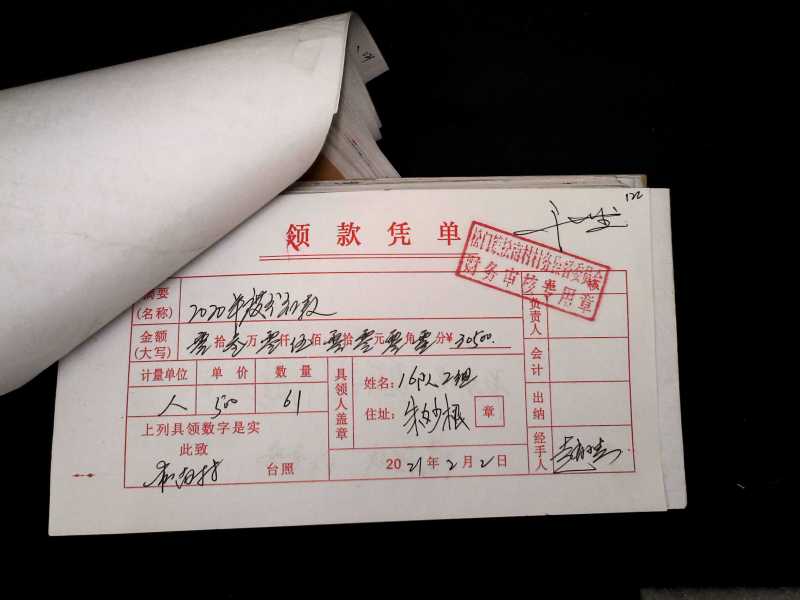 122
领款凭单
松门镇松南村村务监督委员会
财务审核专用章
摘要
(名称)
2020年
审核
负责人
金额
(大写)
零拾叁万零仟伍佰零拾零元零角零分¥30500.
计量单位 单价 数量
人 500 61
会计
具领人盖章
姓名: 16队2组
住址:
章
出纳
上列具领数字是实
此致
台照
2021年2月2日
经手人